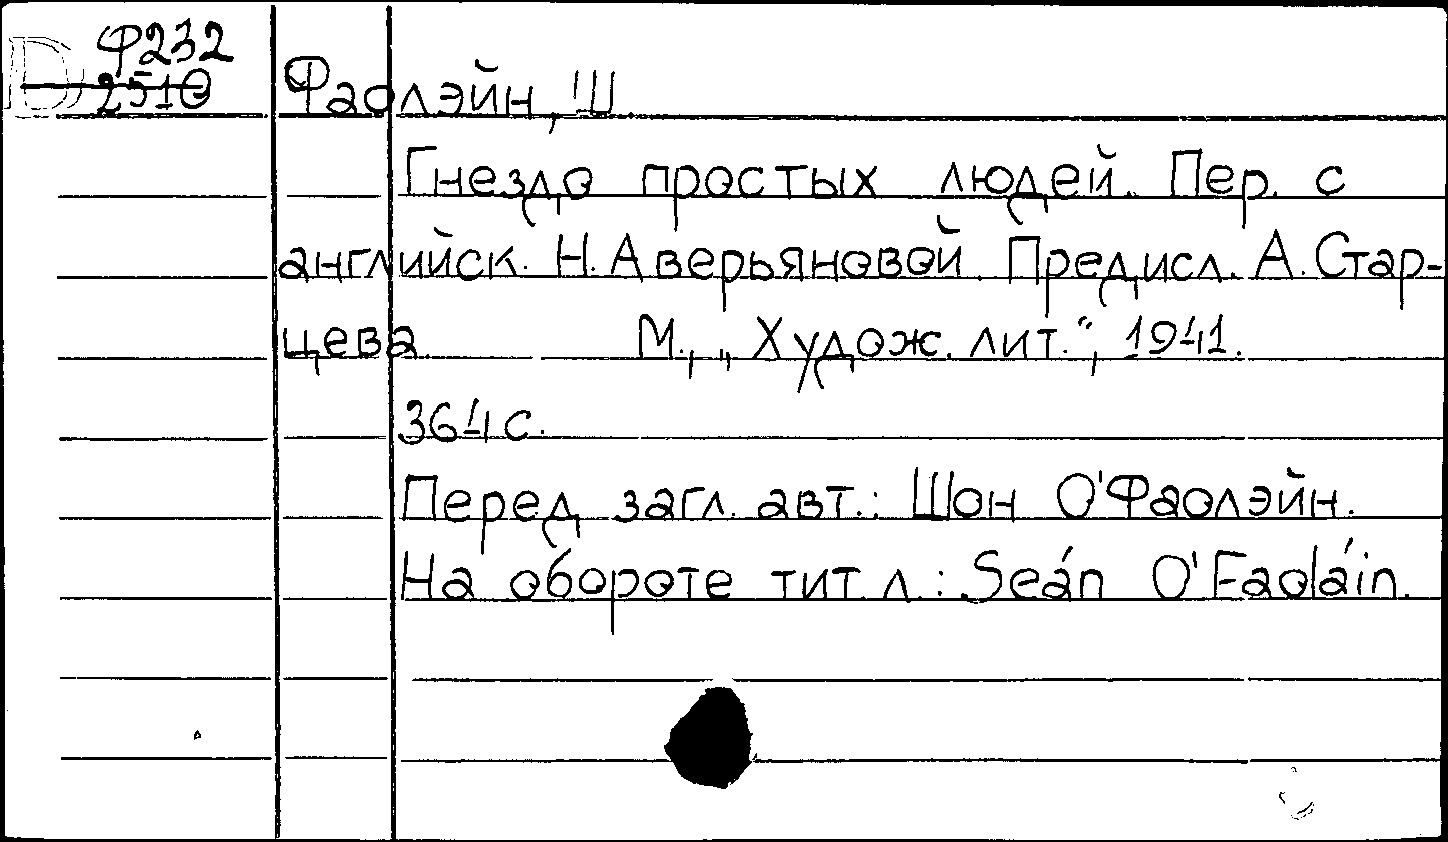 Ф232
2510
Фаолэйн, Ш
Гнездо простых людей. Пер. с
английск. Н. Аверьяновой. Предисл. А. Стар-
цева. М., „Худож. лит.", 1941.
364 с.
Перед загл. авт.: Шон О'Фаолэйн.
На обороте тит. л.: Seán O'Faoláin.